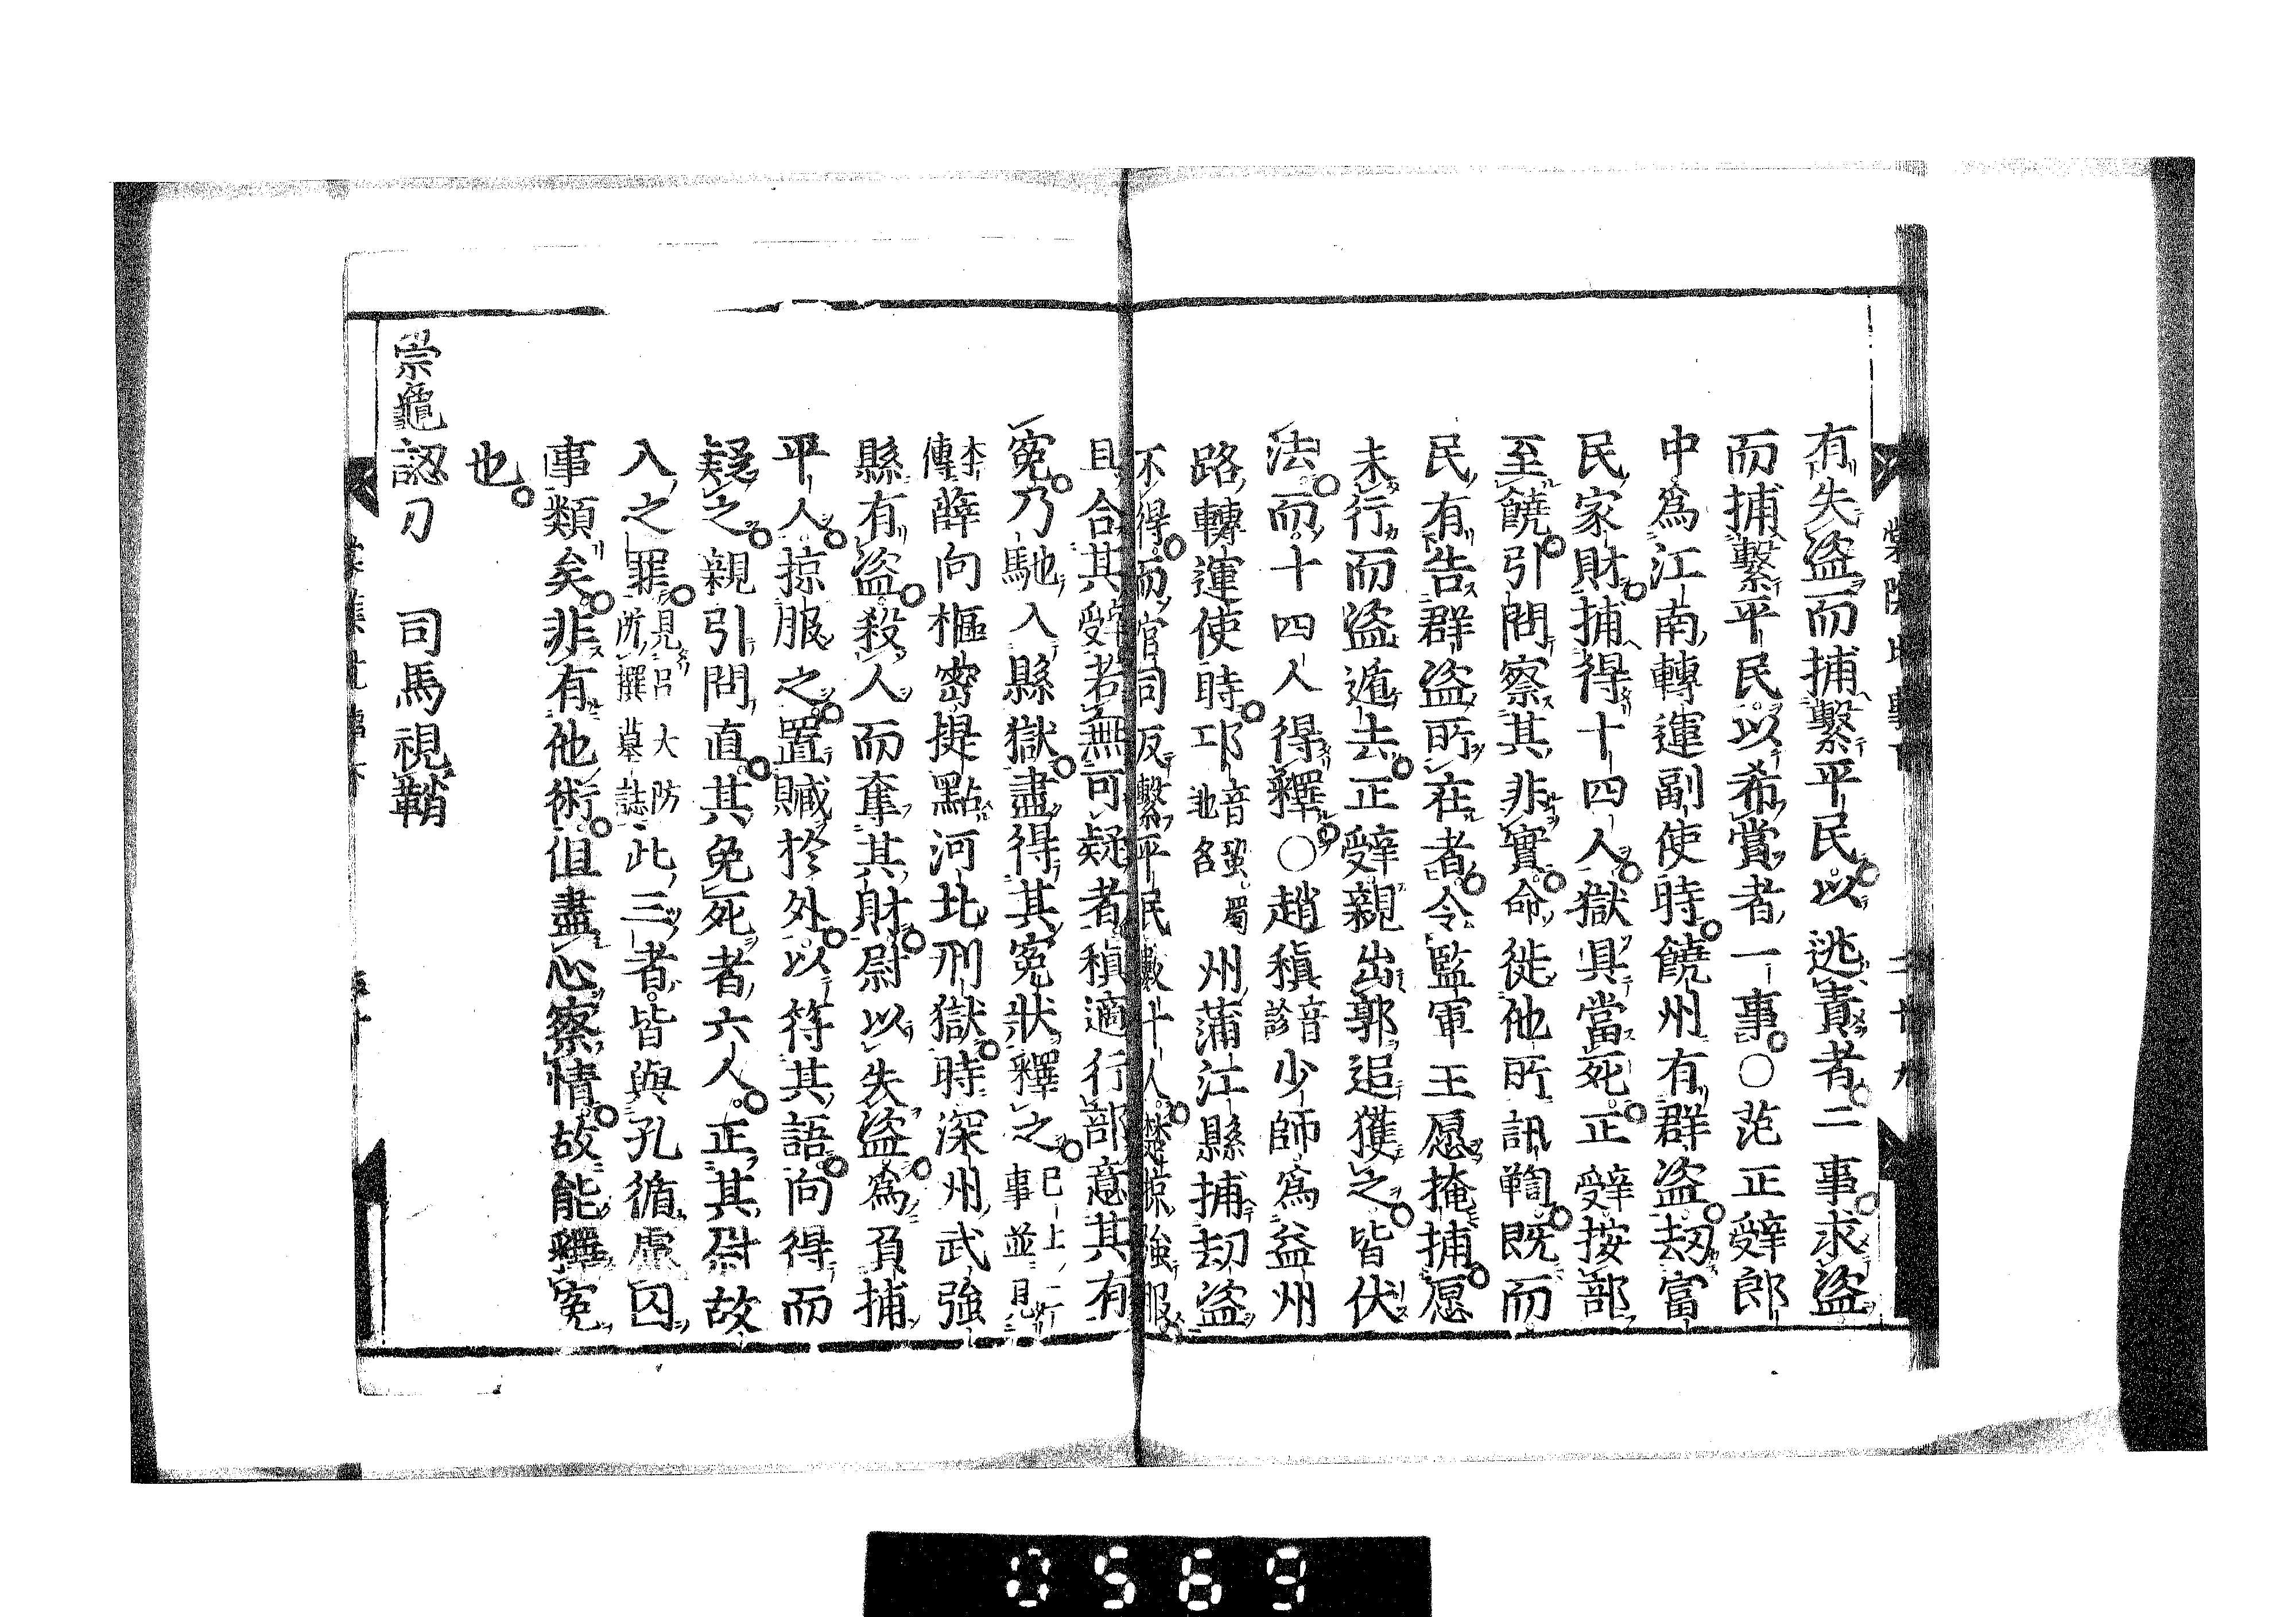 有失盜而捕繫平民以逃責者二事求盜
而捕繫平民以希賞者一事○范正辭郎
中爲江南轉運副使時饒州有群盜劫富
民家財捕得十四人獄具當死正辭按部
至饒引問察其非實命徙他所訊鞫既而
民有告群盜所在者令監軍王愿掩捕愿
未行而盜遁去正辭親出郭追獲之皆伏
法而十四人得釋○趙稹音診少師爲益州
路轉運使時邛音蛩蜀地名州蒲江縣捕劫盜
不得而官司反繫平民數十人楚掠強服
且合其辭若無可疑者稹適行部意其有
冤乃馳入縣獄盡得其冤狀釋之已上二事並見
本傳薛向樞密提點河北刑獄時深州武強
縣有盜殺人而奪其財尉以失盜爲負捕
平人掠服之置贓於外以符其語向得而
疑之親引問直其免死者六人正其尉故
入之罪見呂大防所撰墓誌此三者皆與孔循慮囚
事類矣非有他術但盡心察情故能釋冤
也
崇龜認刀　司馬視鞘
0569